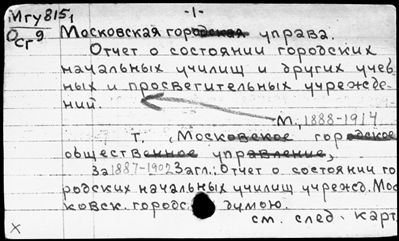 Мгу 815,
Осг 9
-1-
Московская городская управа.
Отчет о состоянии городских
начальных училищ и других учеб
ных и просветительных учрежде-
ний.
М., 1888-1914
т. , Московское городское
общественное управление,
За 1887-1902 загл.: Отчет о состоянии го
родских начальных училищ учрежд. Мос
ковск. городс. думою.
см. след. карт
x